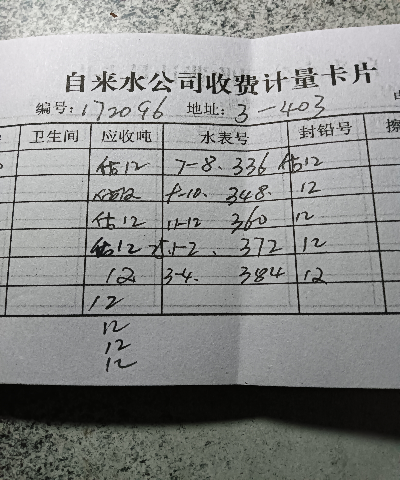 自来水公司收费计量卡片
编号: 172096 地址: 3-403
卫生间 应收吨 水表号 封铅号
估12 7-8. 336 估12
9-10. 348. 12
估12 11-12 360 12
估12 1-2. 372 12
12 3-4. 384 12
12
12
12
12